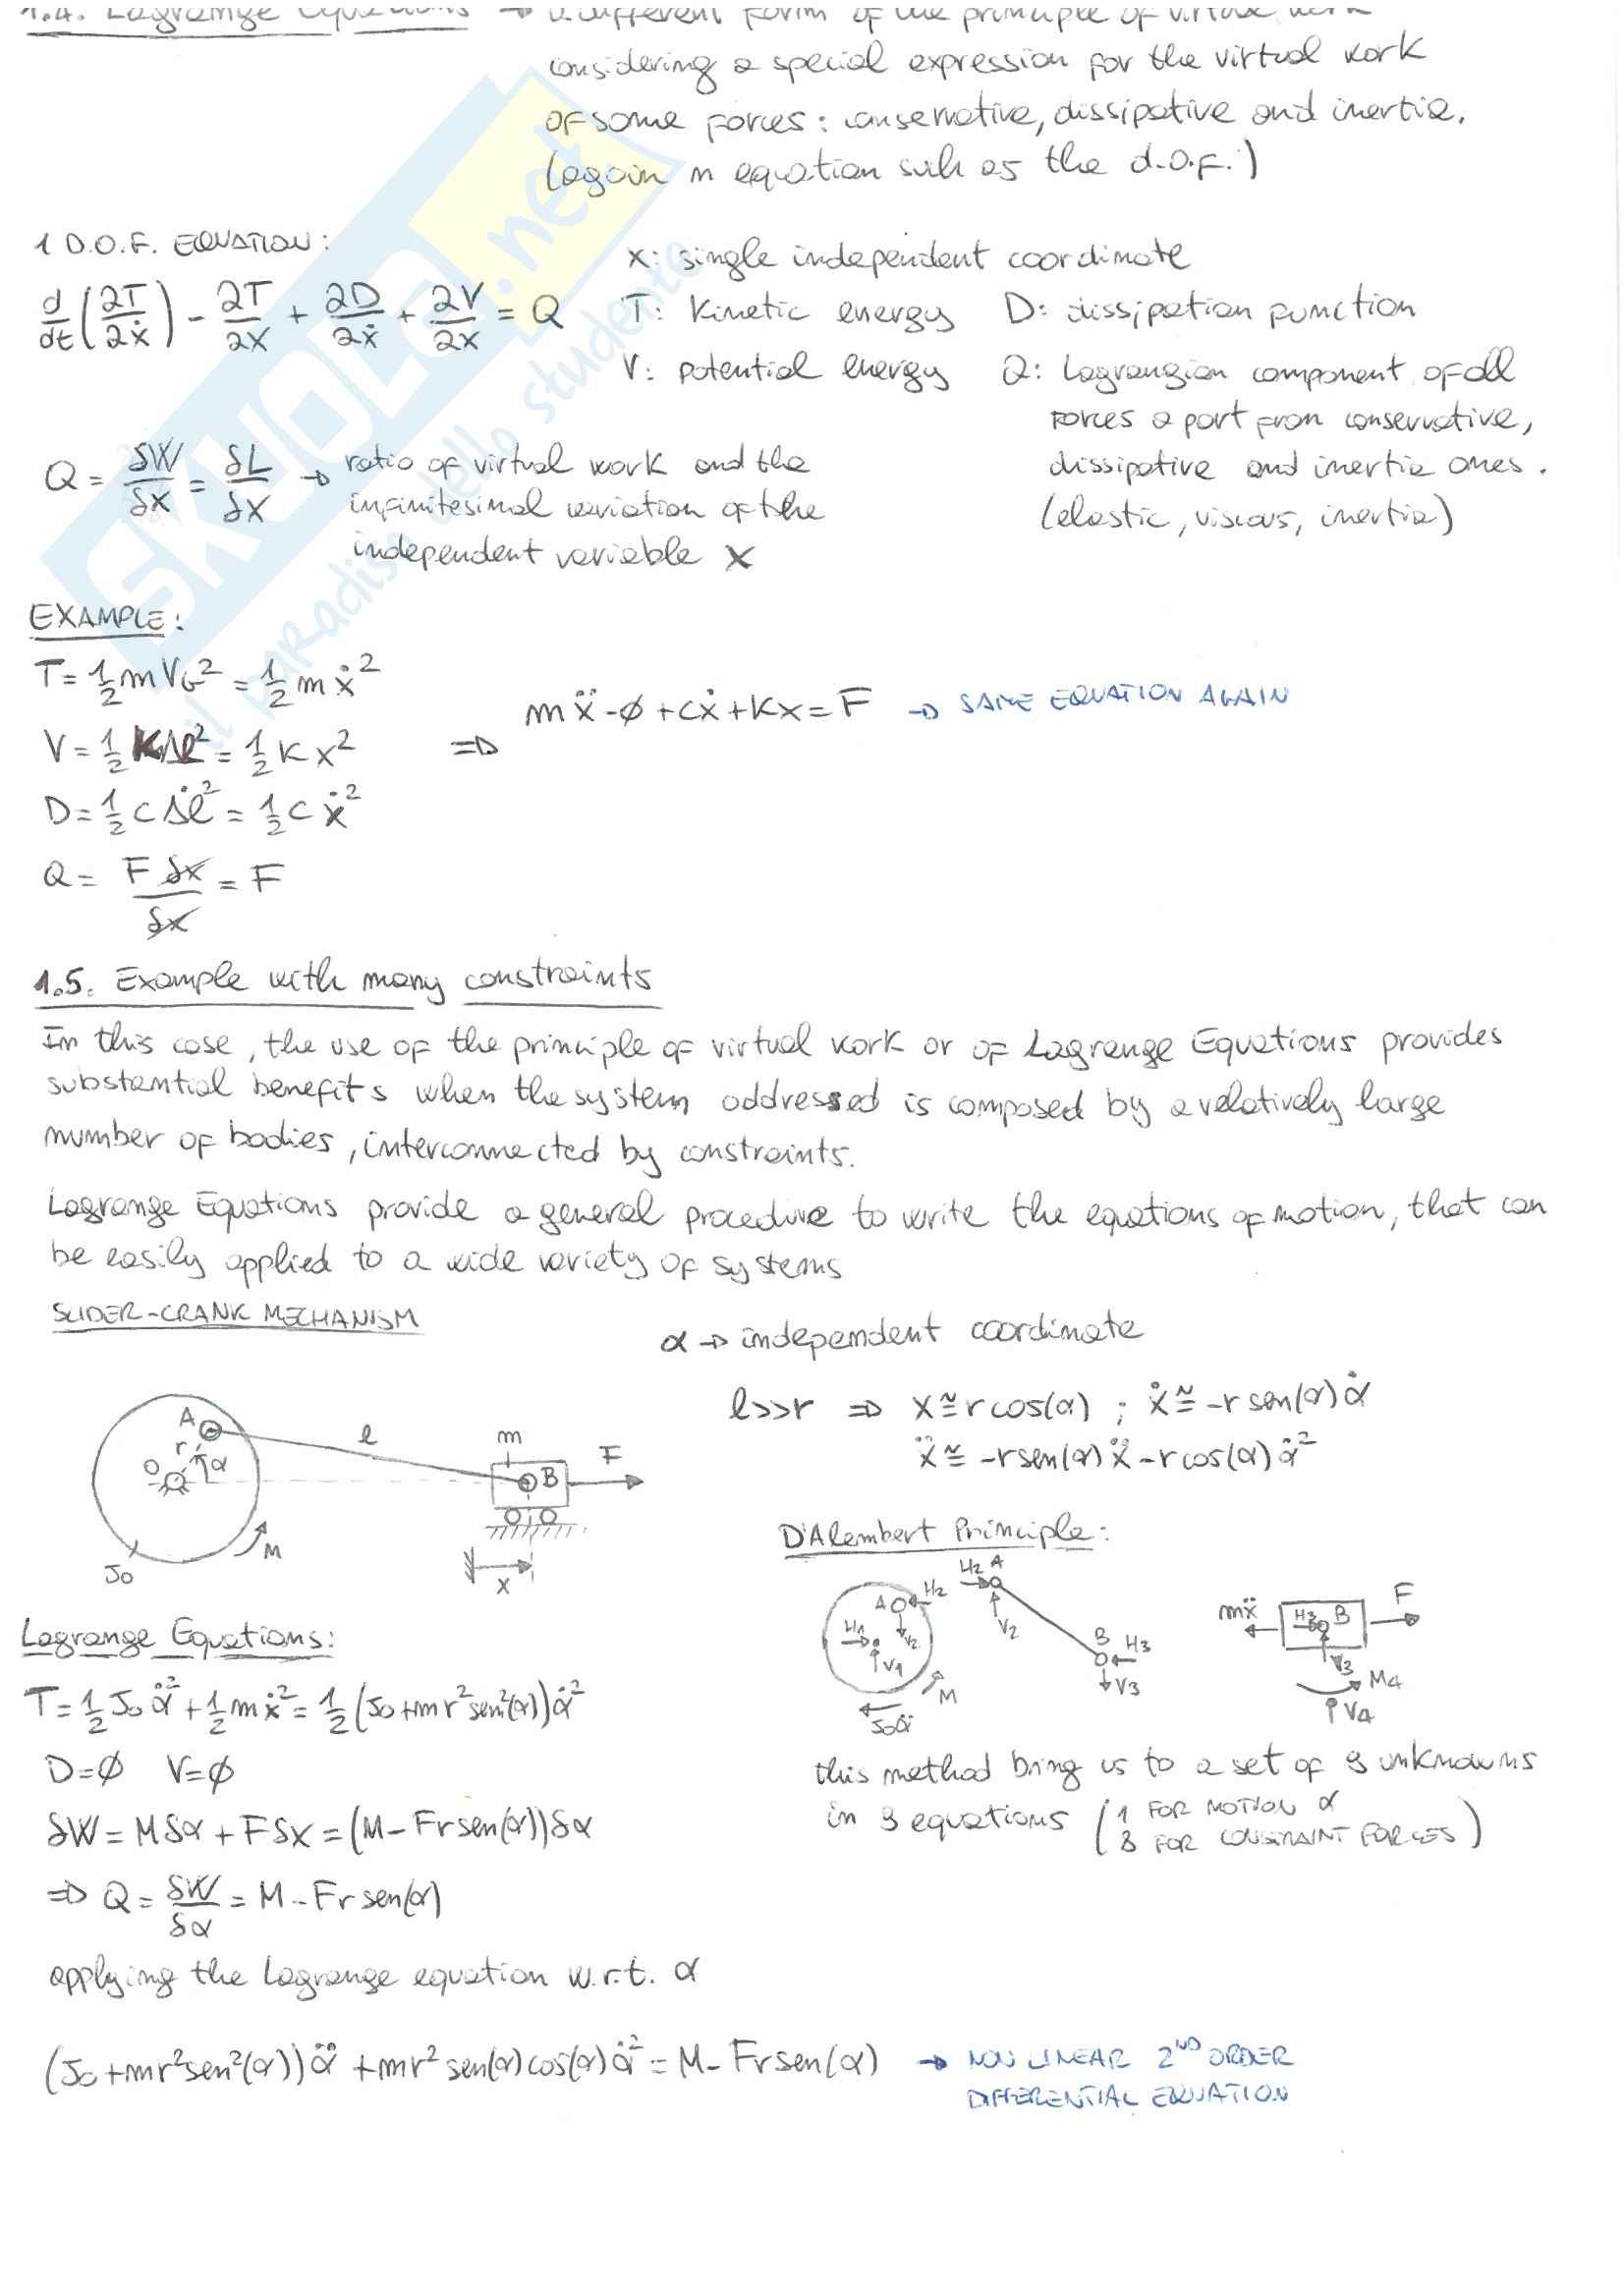 1.4. Lagrange Equations → a different form of the principle of virtual work
considering a special expression for the virtual work
of some forces: conservative, dissipative and inertia.
(again n equation such as the d.o.f.)
1 D.O.F. EQUATION:
x: single independent coordinate
d/dt (∂T/∂ẋ) - ∂T/∂x + ∂D/∂ẋ + ∂V/∂x = Q
T: kinetic energy D: dissipation function
V: potential energy Q: Lagrangian component of all
forces a part from conservative,
dissipative and inertia ones.
(elastic, viscous, inertia)
Q = δW/δx = δL/δx → ratio of virtual work and the
infinitesimal variation of the
independent variable x
EXAMPLE:
T = 1/2 m V_G² = 1/2 m ẋ²
V = 1/2 K Δl² = 1/2 K x²
D = 1/2 c Δl̇² = 1/2 c ẋ²
Q = F δx/δx = F
⇒ mẍ - ∅ + cẋ + Kx = F → SAME EQUATION AGAIN
1.5. Example with many constraints
In this case, the use of the principle of virtual work or of Lagrange Equations provides
substantial benefits when the system addressed is composed by a relatively large
number of bodies, interconnected by constraints.
Lagrange Equations provide a general procedure to write the equations of motion, that can
be easily applied to a wide variety of systems
SLIDER-CRANK MECHANISM
A r O α l m B F J₀ M x
α → independent coordinate
l>>r ⇒ x ≅ r cos(α) ; ẋ ≅ -r sen(α) α̇
ẍ ≅ -r sen(α) ẍ - r cos(α) α̇²
D'Alembert Principle:
A H₂ V₂ H₁ V₁ M J₀α̈
H₂ A V₂ B H₃ V₃
mẍ H₃ B F V₃ M₄ V₄
this method bring us to a set of 9 unknowns
in 9 equations (1 FOR MOTION α
8 FOR CONSTRAINT FORCES)
Lagrange Equations:
T = 1/2 J₀ α̇² + 1/2 m ẋ² = 1/2 (J₀ + mr² sen²(α)) α̇²
D = ∅ V = ∅
δW = Mδα + Fδx = (M - Fr sen(α)) δα
⇒ Q = δW/δα = M - Fr sen(α)
applying the Lagrange equation w.r.t. α
(J₀ + mr² sen²(α)) α̈ + mr² sen(α) cos(α) α̇² = M - Fr sen(α) → NON LINEAR 2ND ORDER
DIFFERENTIAL EQUATION
SKUOLA.net
il paradiso dello studente